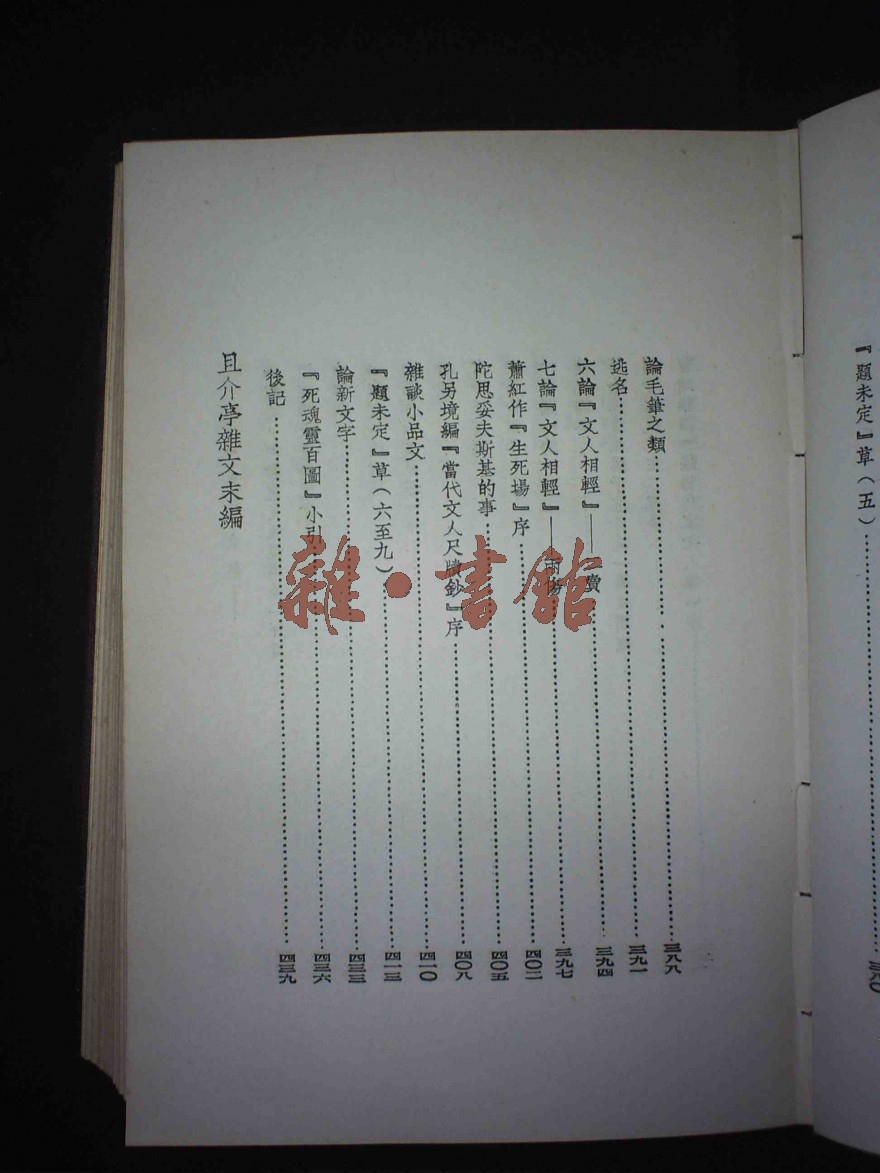 『題未定』草（五）……三八〇
論毛筆之類……三八八
逃名……三九一
六論『文人相輕』——賣……三九四
七論『文人相輕』——兩傷……三九七
蕭紅作『生死場』序……四〇二
陀思妥夫斯基的事……四〇五
孔另境編『當代文人尺牘鈔』序……四〇八
雜談小品文……四一〇
『題未定』草（六至九）……四一三
論新文字……四三三
『死魂靈百圖』小引……四三六
後記……四三九
且介亭雜文末編
雜·書館